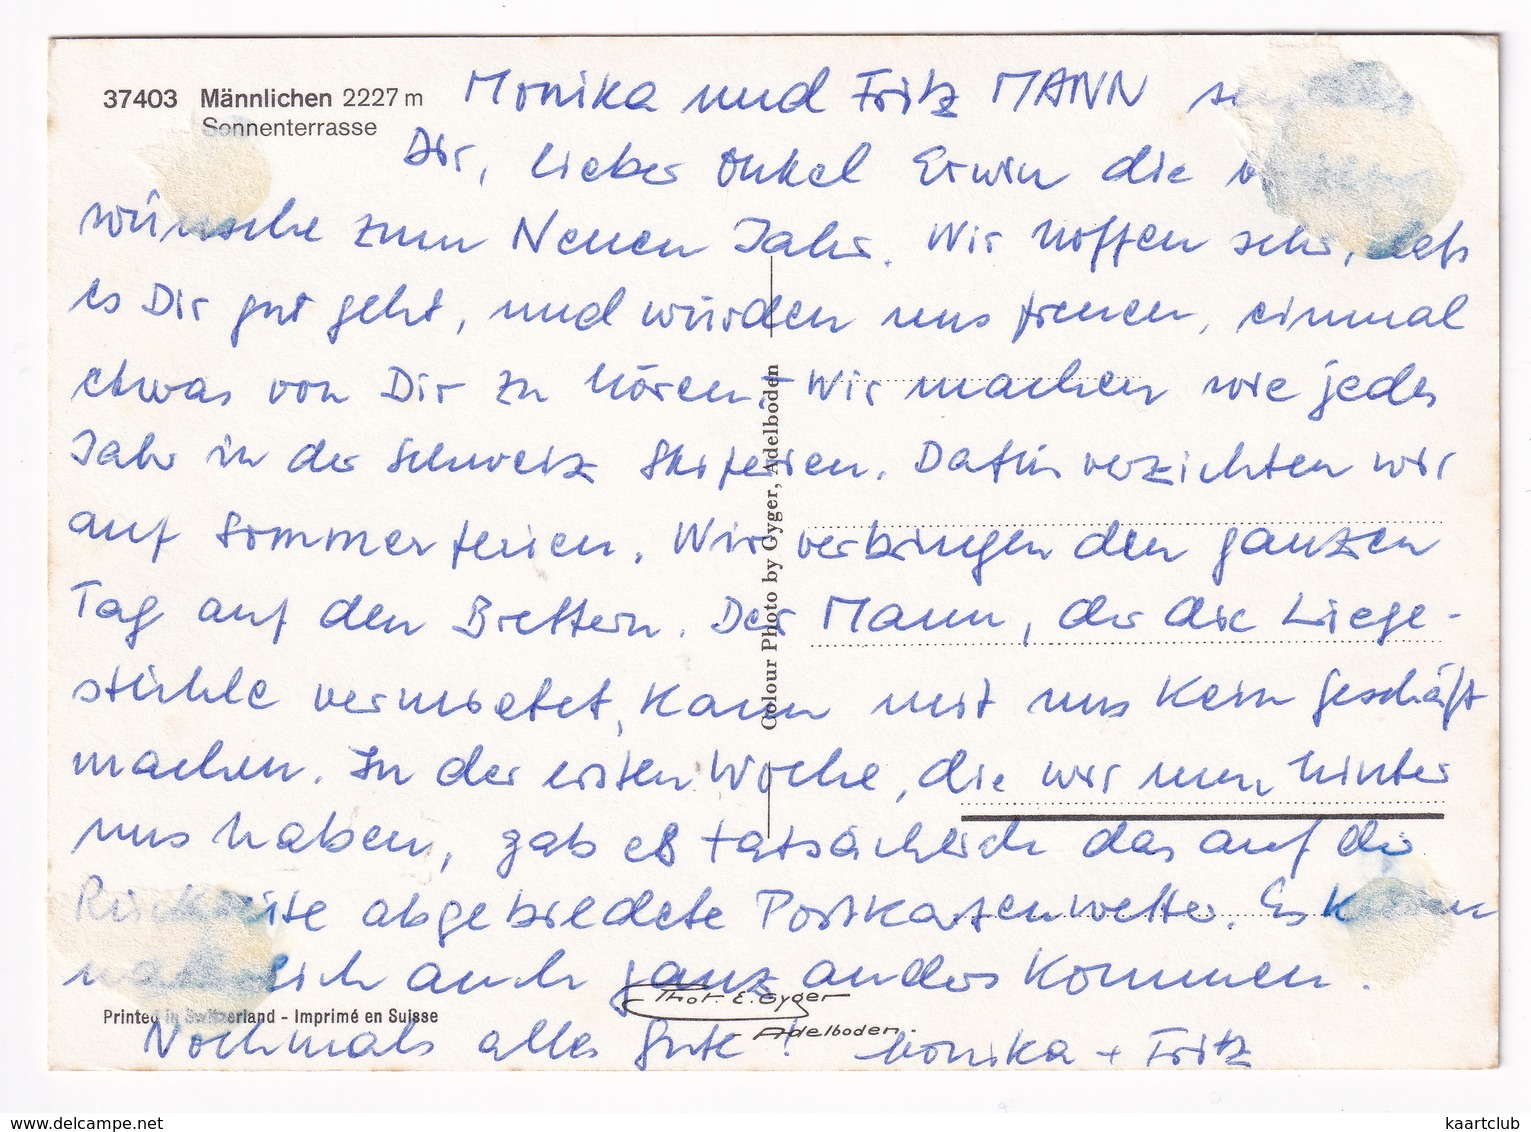 37403 Männlichen 2227 m
Sonnenterrasse
Monika und Fritz MANN
Dir, lieber Onkel Erwin die
wünsche zum Neuen Jahr. Wir hoffen sehr, daß
es Dir gut geht, und würden uns freuen, einmal
etwas von Dir zu hören. - Wir machen wie jedes
Jahr in der Schweiz Skiferien. Dafür verzichten wir
auf Sommerferien. Wir verbringen den ganzen
Tag auf den Brettern. Der Mann, der die Liege-
stühle vermietet, kann mit uns kein Geschäft
machen. In der ersten Woche, die wir nun hinter
uns haben, gab es tatsächlich das auf der
Rückseite abgebildete Postkartenwetter. Es kann
natürlich auch ganz anders kommen.
Nochmals alles Gute! Monika + Fritz
Colour Photo by Gyger, Adelboden
Phot. E. Gyger
Adelboden.
Printed in Switzerland - Imprimé en Suisse
www.delcampe.net
kaartclub